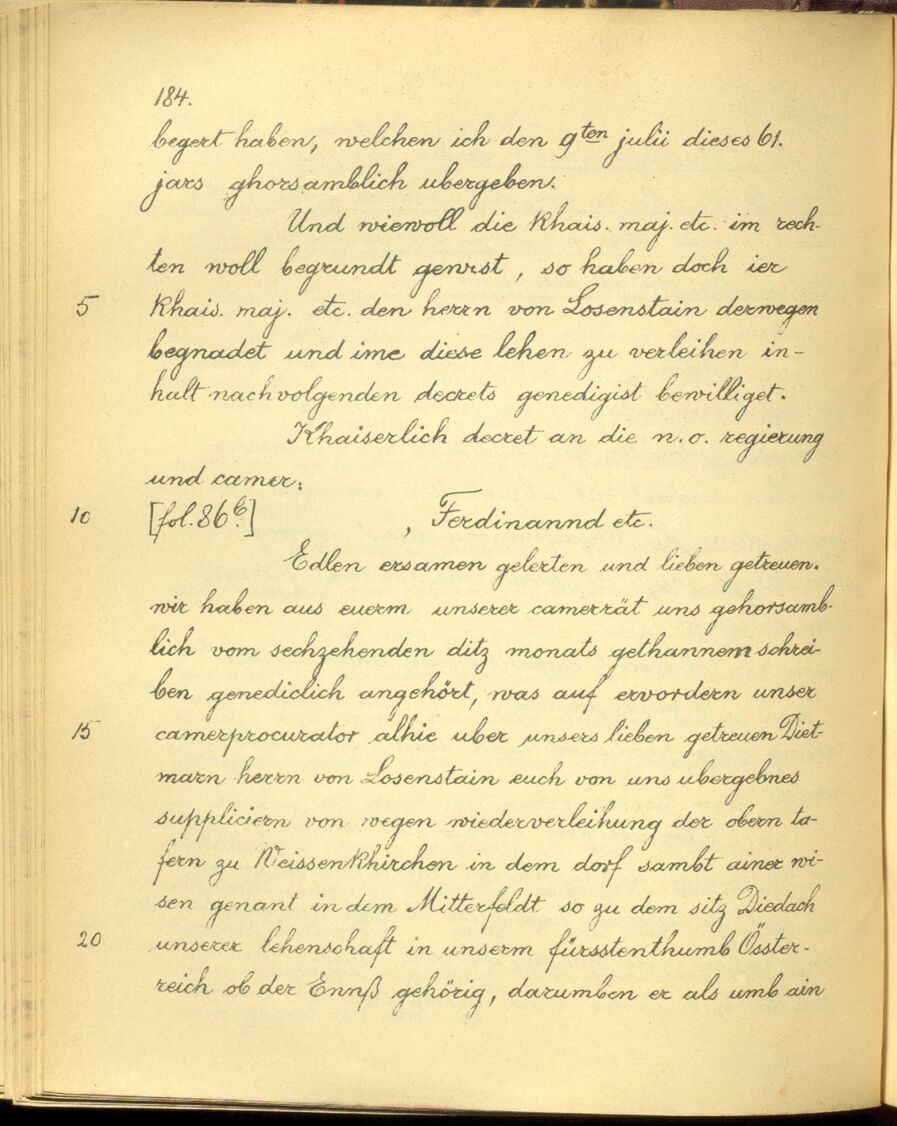 184.
begert haben, welchen ich den 9ten julii dieses 61.
jars ghorsamblich ubergeben.
Und wiewoll die khais. maj. etc. im rech-
ten woll begrundt gewest, so haben doch ier
5 khais. maj. etc. den herrn von Losenstain derwegen
begnadet und ime diese lehen zu verleihen in-
halt nachvolgenden decrets genedigist bewilliget.
Khaiserlich decret an die n. o. regierung
und camer:
10 [fol. 86b.] , Ferdinannd etc.
Edlen ersamen gelerten und lieben getreuen.
wir haben aus euerm unserer camerrät uns gehorsamb-
lich vom sechzehenden ditz monats gethannem schrei-
ben genediclich angehört, was auf ervordern unser
15 camerprocurator alhie uber unsers lieben getreuen Diet-
marn herrn von Losenstain euch von uns ubergebnes
suppliciern von wegen wiederverleihung der obern ta-
fern zu Weissenkhirchen in dem dorf sambt ainer wi-
sen genant in dem Mitterfeldt so zu dem sitz Diedach
20 unserer lehenschaft in unserm fürsstenthumb Össter-
reich ob der Ennß gehörig, darumben er als umb ain